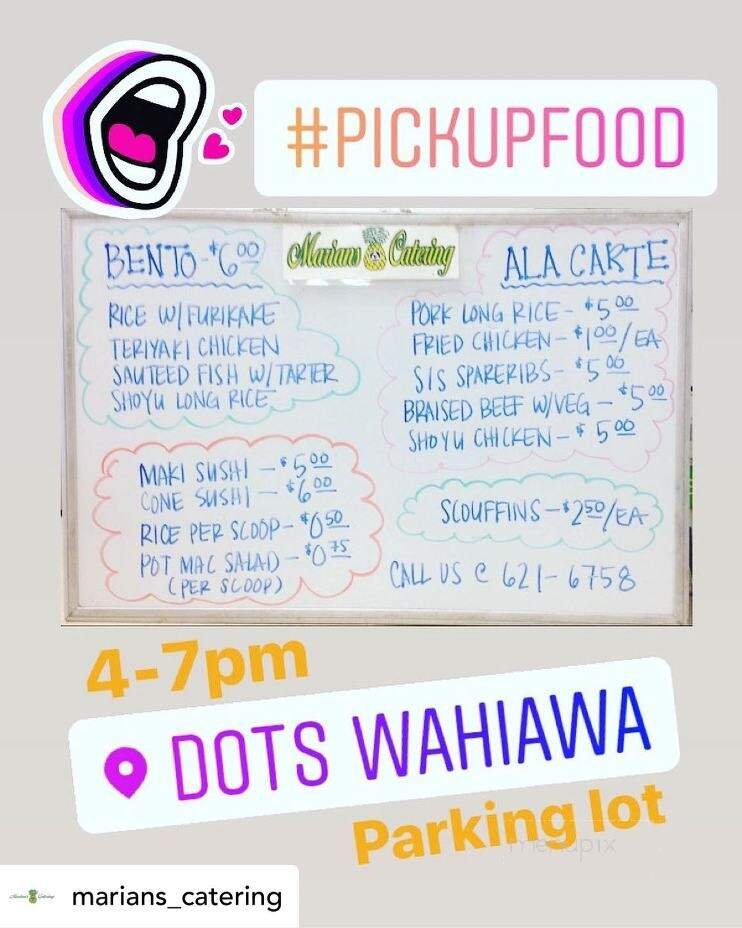 #PICKUPFOOD
BENTO - $6.00
Marians Catering
ALA CARTE
RICE W/ FURIKAKE
TERIYAKI CHICKEN
SAUTEED FISH W/ TARTER
SHOYU LONG RICE
PORK LONG RICE - $5.00
FRIED CHICKEN - $1.00/EA
S/S SPARERIBS - $5.00
BRAISED BEEF W/VEG - $5.00
SHOYU CHICKEN - $5.00
MAKI SUSHI - $5.00
CONE SUSHI - $6.00
RICE PER SCOOP - $0.50
POT MAC SALAD - $0.75
(PER SCOOP)
SCOUFFINS - $2.50/EA
CALL US @ 621-6758
4-7pm
DOTS WAHIAWA
Parking lot
menupix
Marians Catering
marians_catering